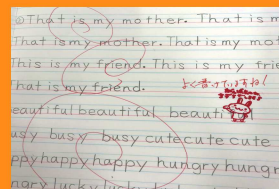 That is my mother. That is m
That is my mother. That is my mot
This is my friend. This is my frie
That is my friend.
よく書けていますね!
eautiful beautiful beauti
usy busy busy cute cute cute
ppy happy happy hungry hung
ngry lucky